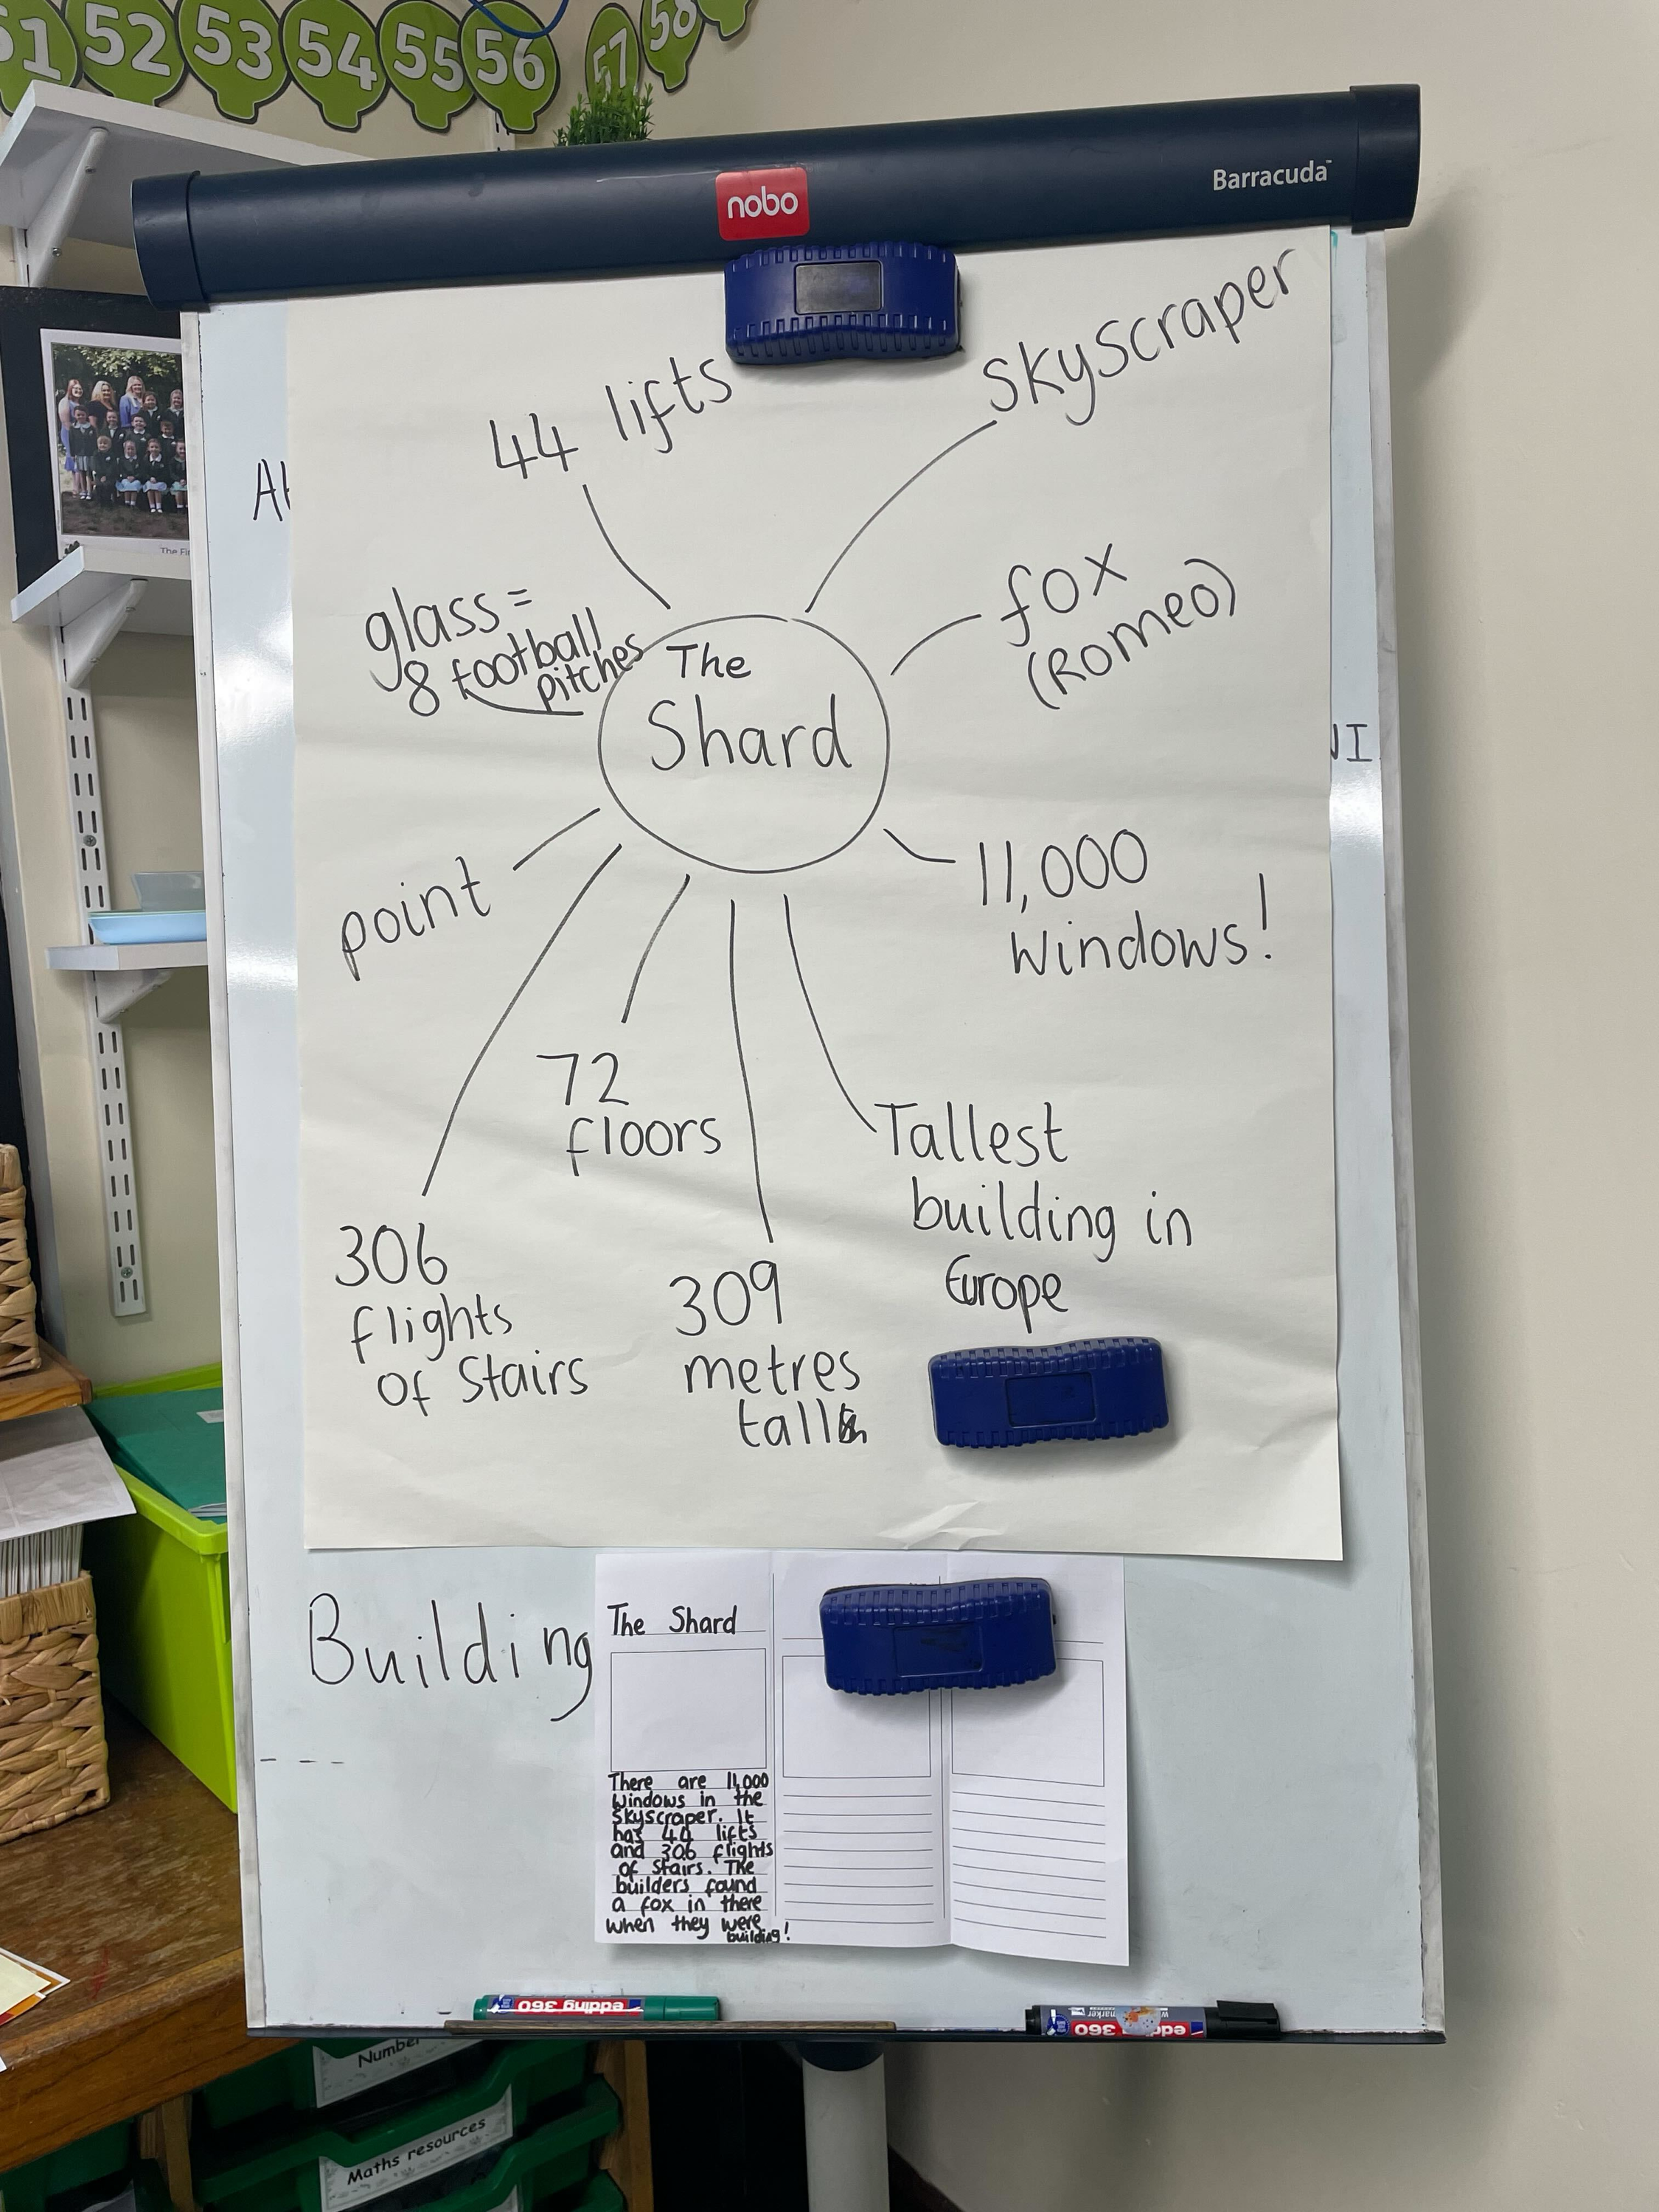 51 52 53 54 55 56 57 58
nobo
Barracuda
44 lifts
skyscraper
glass =
8 football
pitches
The
Shard
fox
(Romeo)
point
11,000
windows!
72
floors
Tallest
building in
Europe
306
flights
of stairs
309
metres
tall
Building
The Shard
There are 11,000
windows in the
skyscraper. It
has 44 lifts
and 306 flights
of stairs. The
builders found
a fox in there
when they were
building!
edding 360
edding 360
Number
Maths resources